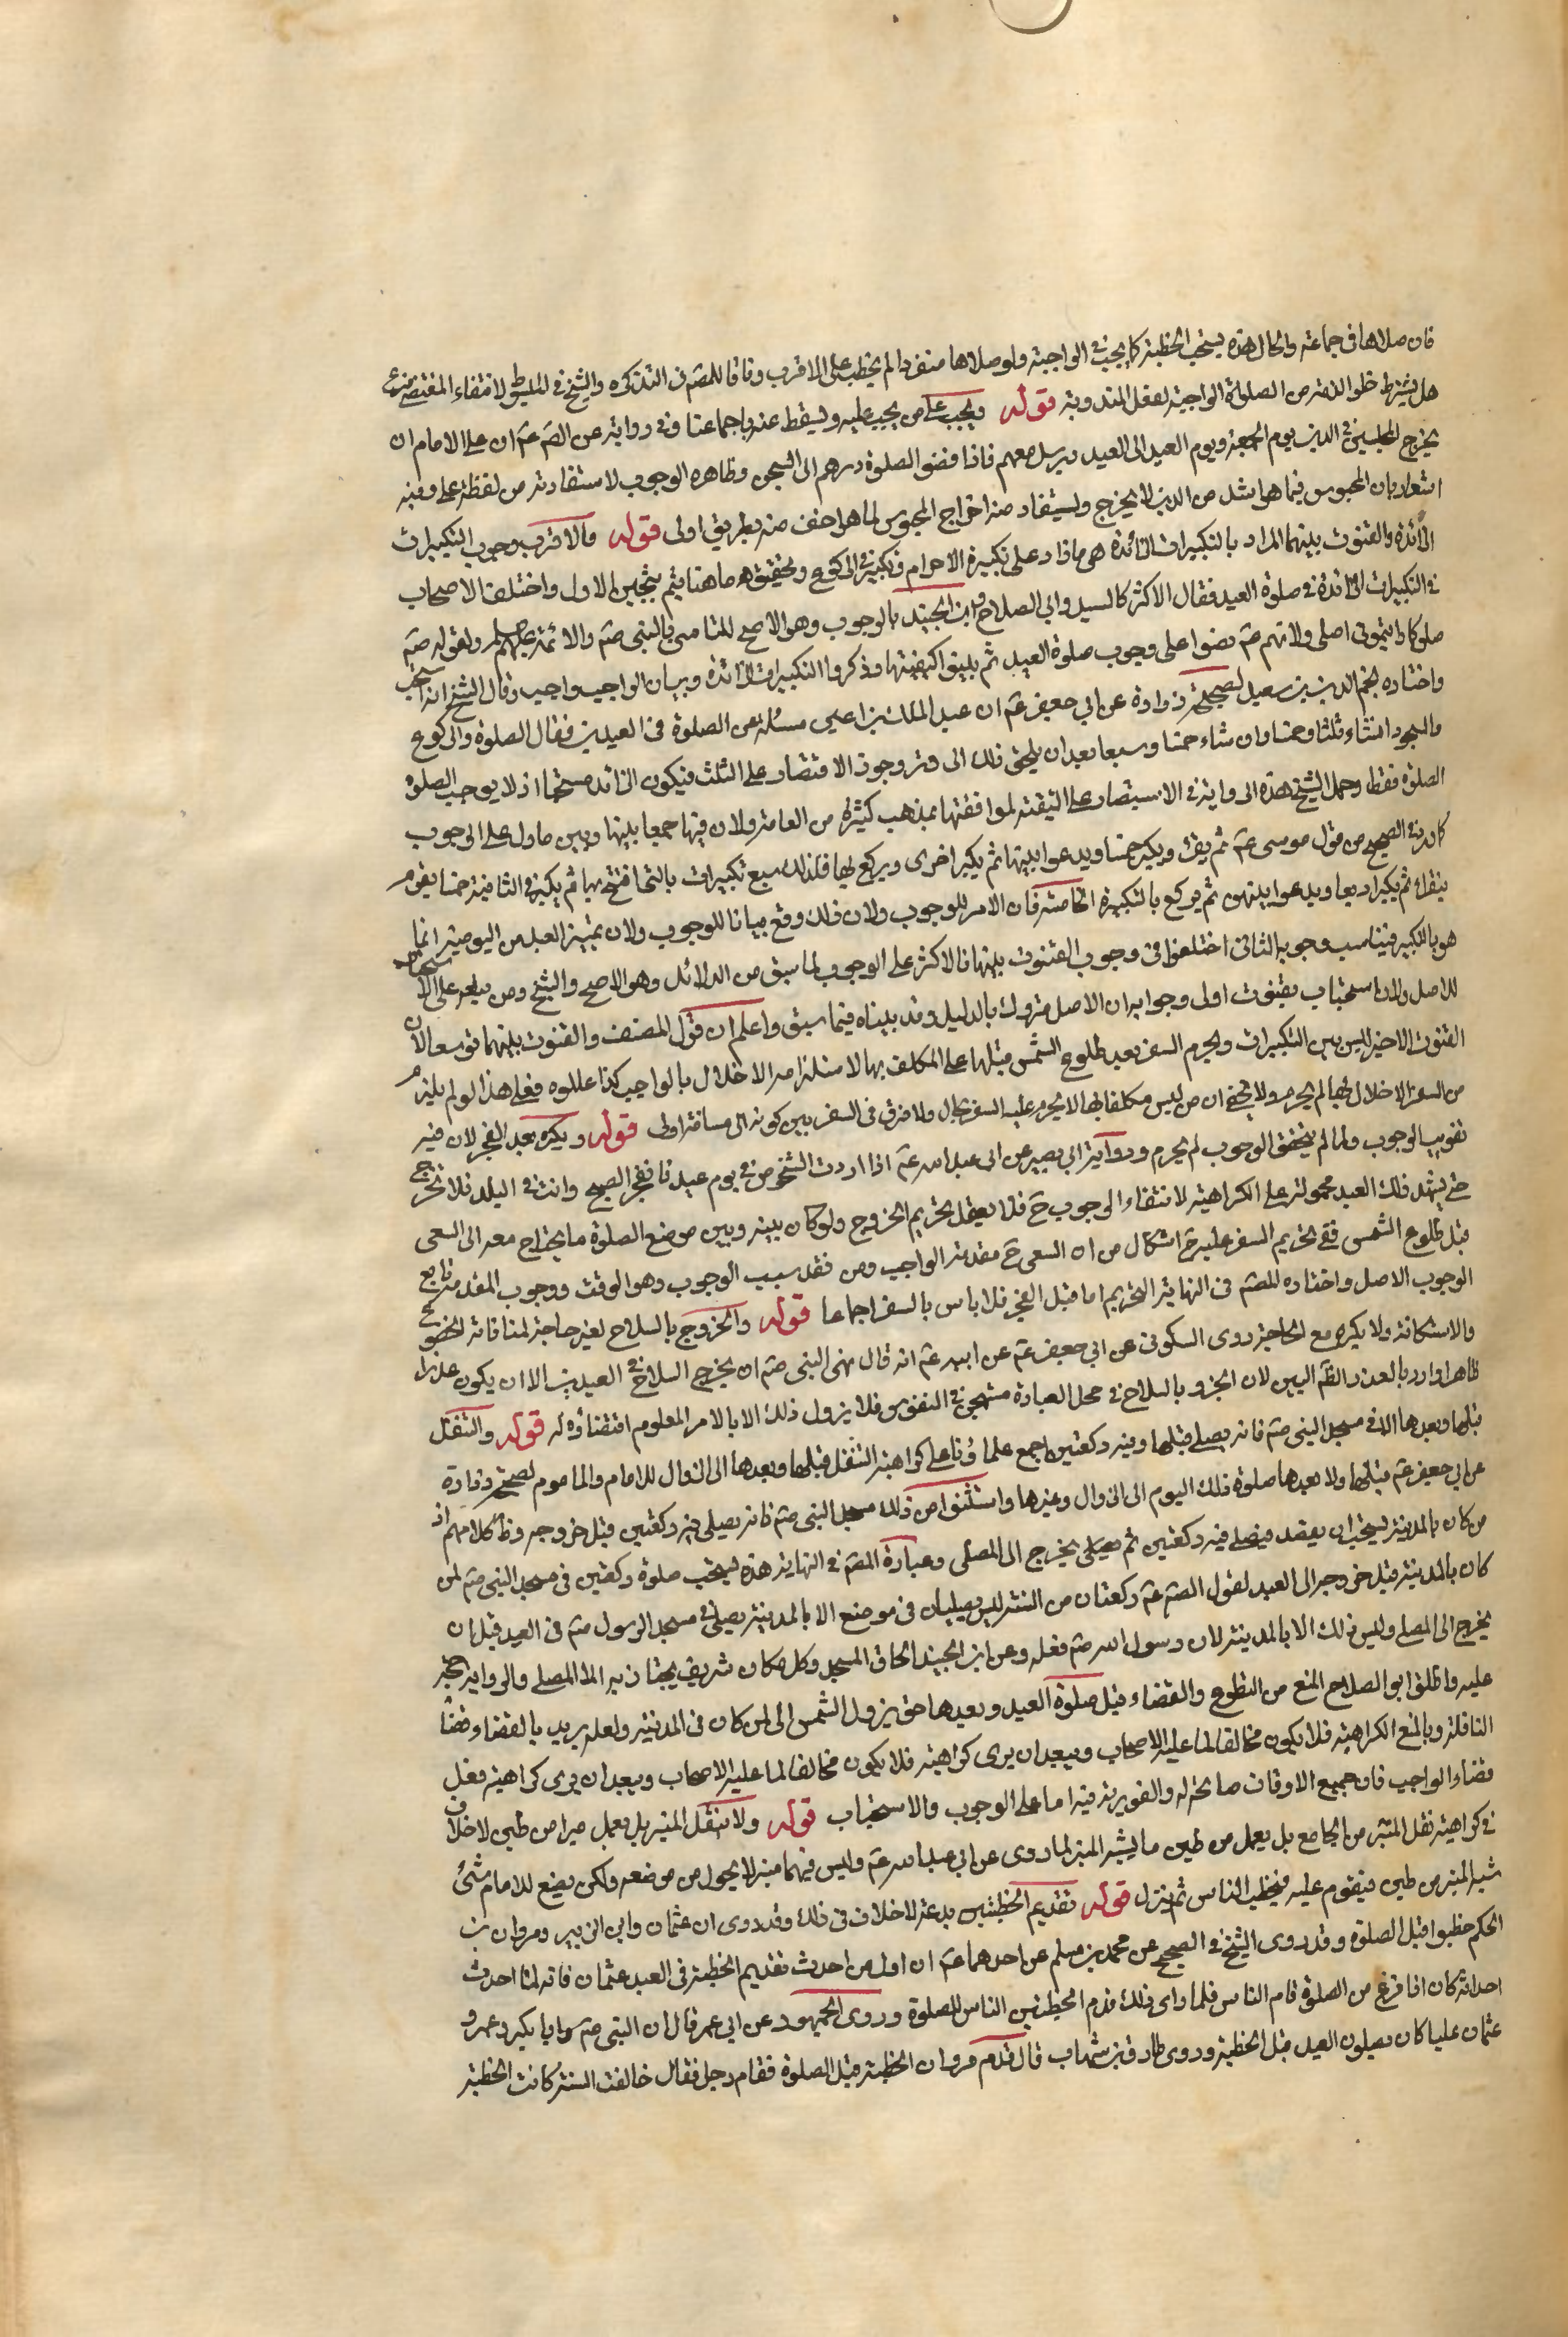 فان صلاها فى جماعة والحال هذه يستحب الخطبة كما يجب فى الواجبة ولو صلاها منفردا لم يخطب على الاقرب وفاقا للمصر فى التذكره والشيخ فى
هل يشترط خلو الذمة من الصلوة الواجبة لفعل المندوبة قوله ويجب على من يجب عليه ويسقط عنه باجماعنا وفى رواية عن الصم عم ان على الامام ان
يخرج المحبسين فى الدين يوم الجمعة ويوم العيد الى العيد ويرسل معهم فاذا قضوا الصلوة ردهم الى السجن وظاهره الوجوب لاستفادته من لفظة على وفيه
اشعار بان المحبوس فيما هو اشد من الدين لا يخرج وليستفاد منه اخراج المحبوس لما هو اخف منه بطريق اولى قوله والاقرب وجوب التكبيرات
الزائدة والقنوت بينهما المراد بالتكبيرات الزائدة هى ما زاد على تكبيرة الاحرام وتكبيرة الركوع وتحقيق ما هنا يتم ببحثين الاول واختلف الاصحاب
فى التكبيرات الزائدة فى صلوة العيد فقال الاكثر كالسيد وابى الصلاح وابن الجنيد بالوجوب وهو الاصح للتاسى بالنبى صم والائمة عليهم ولقوله صم
صلوا كما رايتمونى اصلى ولانهم عم نصوا على وجوب صلوة العيد ثم بينوا كيفيتها وذكروا التكبيرات الزائدة وبيان الواجب واجب وقال الشيخ انه
واختاره نجم الدين بن سعيد لصحيحة زرارة عن ابى جعفر عم ان عبد الملك بن اعين سئله عن الصلوة فى العيدين فقال الصلوة والركوع
والسجود ان شاء ثلثا وخمسا وان شاء خمسا وسبعا بعد ان يلحق ذلك الى وتر وجوز الاقتصار على الثلث فيكون الزائد مستحبا اذ لا يوجب الصلوة
الصلوة فقط وحمل الشيخ هذه الرواية فى الاستبصار على التقية لموافقتها بمذهب كثير من العامة ولان فيها جمعا بينها وبين ما دل على الوجوب
كما رد فى الصحيح من قول موسى عم ثم يقرء ويكبر خمسا ويدعوا بينها ثم يكبر اخرى ويركع بها فذلك سبع تكبيرات بالتى افتتح بها ثم يكبر فى الثانية خمسا يقوم
فيقراء ثم يكبر اربعا ويدعوا بينهن ثم يركع بالتكبيرة الخامسة فان الامر للوجوب ولان ذلك وقع بيانا للوجوب ولان تميز العيد من اليومية انما
هو بالتكبير فيناسب وجوبه الثانى اختلفوا فى وجوب القنوت بينها فالاكثر على الوجوب لما سبق من الدلائل وهو الاصح والشيخ ومن بعده على الاستحباب
للاصل ولان استحباب بقنوت اولى وجوابه ان الاصل متروك بالدليل وقد بيناه فيما سبق واعلم ان قول المصنف والقنوت بينهما توسعا لان
القنوت الاخير ليس بين التكبيرات ويحرم السفر بعد طلوع الشمس قبلها على المكلف بها لاستلزامه الاخلال بالواجب كذا عللوه فعلى هذا لو لم يلزم
من السفر الاخلال بها لم يحرم ولا يخفى ان من ليس مكلفا بها لا يحرم عليه السفر بحال ولا فرق فى السفر بين كونه الى مسافة اولى قوله ويكره بعد الفجر لان فيه
تفويت الوجوب ولما لم يتحقق الوجوب لم يحرم ورواية ابى بصير عن ابى عبد الله عم اذا اردت الشخوص فى يوم عيد فانفجر الصبح وانت فى البلد فلا تخرج
حتى تشهد ذلك العيد محمولة على الكراهية لانتفاء الوجوب ح فلا يعقل تحريم الخروج ولو كان بينه وبين موضع الصلوة ما يحتاج معه الى السعى
قبل طلوع الشمس ففى تحريم السفر عليه ح اشكال من ان السعى ح مقدمة الواجب ومن فقد سبب الوجوب وهو الوقت ووجوب المقدمة تابع
لوجوب الاصل واختاره للمصم فى النهاية التحريم اما قبل الفجر فلا باس بالسفر اجماعا قوله والخروج بالسلاح لغير حاجة لمنافاته للخضوع
والاستكانة ولا يكره مع الحاجة روى السكونى عن ابى جعفر عم عن ابيه عم انه قال نهى النبى صم ان يخرج السلاح فى العيدين الا ان يكون عدوا
ظاهرا واراد بالعذر الظم البين لان الخروج بالسلاح فى محل العبادة مستهجن فى النفوس فلا يزول ذلك الا بالامر المعلوم اقتضاؤه له قوله والتنفل
قبلها وبعدها الا فى مسجد النبى صم فانه يصلى قبلها وفيه ركعتين اجمع علماؤنا على كراهية التنفل قبلها وبعدها الى الزوال للامام والماموم لصحيحة زرارة
عن ابى جعفر عم قبلها ولا بعدها صلوة ذلك اليوم الى الزوال وغيرها واستثنوا من ذلك مسجد النبى صم فانه يصلى فيه ركعتين قبل خروجه وظ كلامهم ان
من كان بالمدينة يستحب ان يقصد فيصلى فيه ركعتين ثم يخرج الى المصلى وعبارة المصم فى النهاية هذه يستحب صلوة ركعتين فى مسجد النبى صم لمن
كان بالمدينة قبل خروجه الى العيد لقول الصم عم ركعتان من السنة ليس يصليان فى موضع الا بالمدينة يصلى فى مسجد الرسول صم فى العيد قبل ان
يخرج الى المصلى وليس ذلك الا بالمدينة لان رسول الله صم فعله وعن ابن الجنيد الحاق المسجد وكل مكان شريف يجتاز به الى المصلى والرواية حجة
عليه واطلق ابو الصلاح المنع من التطوع والقضاء قبل صلوة العيد وبعدها حتى يزول الشمس الى لمن كان فى المدينة ولعله يريد بالقضاء قضاء
النافلة وبالمنع الكراهية فلا يكون مخالفا لما عليه الاصحاب ويبعد ان يرى كراهية فلا يكون مخالفا لما عليه الاصحاب ويبعد ان يرى كراهية فعل
قضاء الواجب فان جميع الاوقات صالحة له والفورية فيه اما على الوجوب والاستحباب قوله ولا ينقل المنبر بل يعمل منبرا من طين لا خلاف
فى كراهية نقل المنبر من الجامع بل يعمل من طين ما يشبه المنبر لما روى عن ابى عبد الله عم وليس فيهما منبر لا يحول من موضعه ولكن يصنع للامام شئ
شبه المنبر من طين فيقوم عليه فيخطب الناس ثم ينزل قوله تقديم الخطبتين بدعة لا خلاف فى ذلك وقد روى ان عثمان وابى الزبير ومروان بن
الحكم خطبوا قبل الصلوة وقد روى الشيخ فى الصحيح عن محمد بن مسلم عن احدهما عم ان اول من احدث تقديم الخطبة فى العيد عثمان فانه لما احدث
احداثه كان اذا فرغ من الصلوة قام الناس فلما راى ذلك قدم الخطبتين الناس للصلوة وروى الجمهور عن ابى عمر قال ان النبى صم وابا بكر وعمر و
عثمان عليا كان يصلون العيد قبل الخطبة وروى طارق بن شهاب قال قدم مروان الخطبة قبل الصلوة فقام رجل فقال خالفت السنة كانت الخطبة